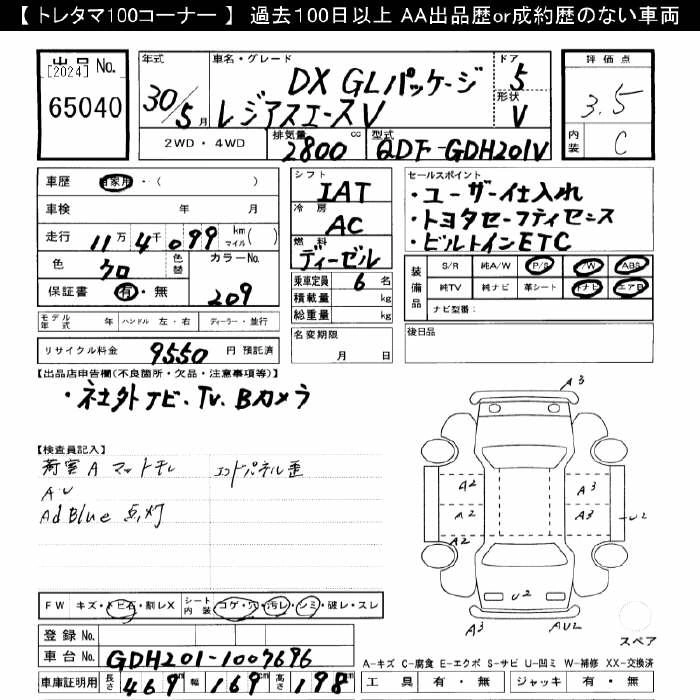 【 トレタマ100コーナー 】 過去100日以上 AA出品歴or成約歴のない車両
出品 No.
[2024]
65040
年式
30/5月
車名・グレード
DX GLパッケージ
レジアスエースV
ドア
5
形状
V
評価点
3.5
内装
C
2WD・4WD
排気量
2800 cc
型式
QDF-GDH201V
車歴 自家用・( )
車検 年 月
走行 11万4千099 km マイル( )
色 クロ 色替 カラーNo. 209
保証書 有・無
シフト
IAT
冷房
AC
燃料
ディーゼル
乗車定員 6 名
積載量 kg
総重量 kg
セールスポイント
・ユーザー仕入れ
・トヨタセーフティセンス
・ビルトインETC
装備品
S/R 純A/W P/S P/W ABS
純TV 純ナビ 革シート 外ナビ エアB
ナビ型番:
モデル年式 年 ハンドル 左・右 ディーラー・並行
リサイクル料金 9550 円 預託済
名変期限
月 日
後日品
【出品店申告欄(不良箇所・欠品・注意事項等)】
・社外ナビ、TV、Bカメラ
【検査員記入】
荷室A マットモレ エンドパネル歪
AU
AdBlue 点灯
A3
A2 A3
A2 A3
A2 U2
U2
A3 AU2
スペア
FW キズ・トビ石・割レX シート内装 コゲ・穴・汚レ・シミ・破レ・スレ
登録 No.
車台 No. GDH201-1007696
車庫証明用 長さ 469 cm 幅 169 cm 高さ 198 cm
A-キズ C-腐食 E-エクボ S-サビ U-凹ミ W-補修 XX-交換済
工具 有・無 ジャッキ 有・無